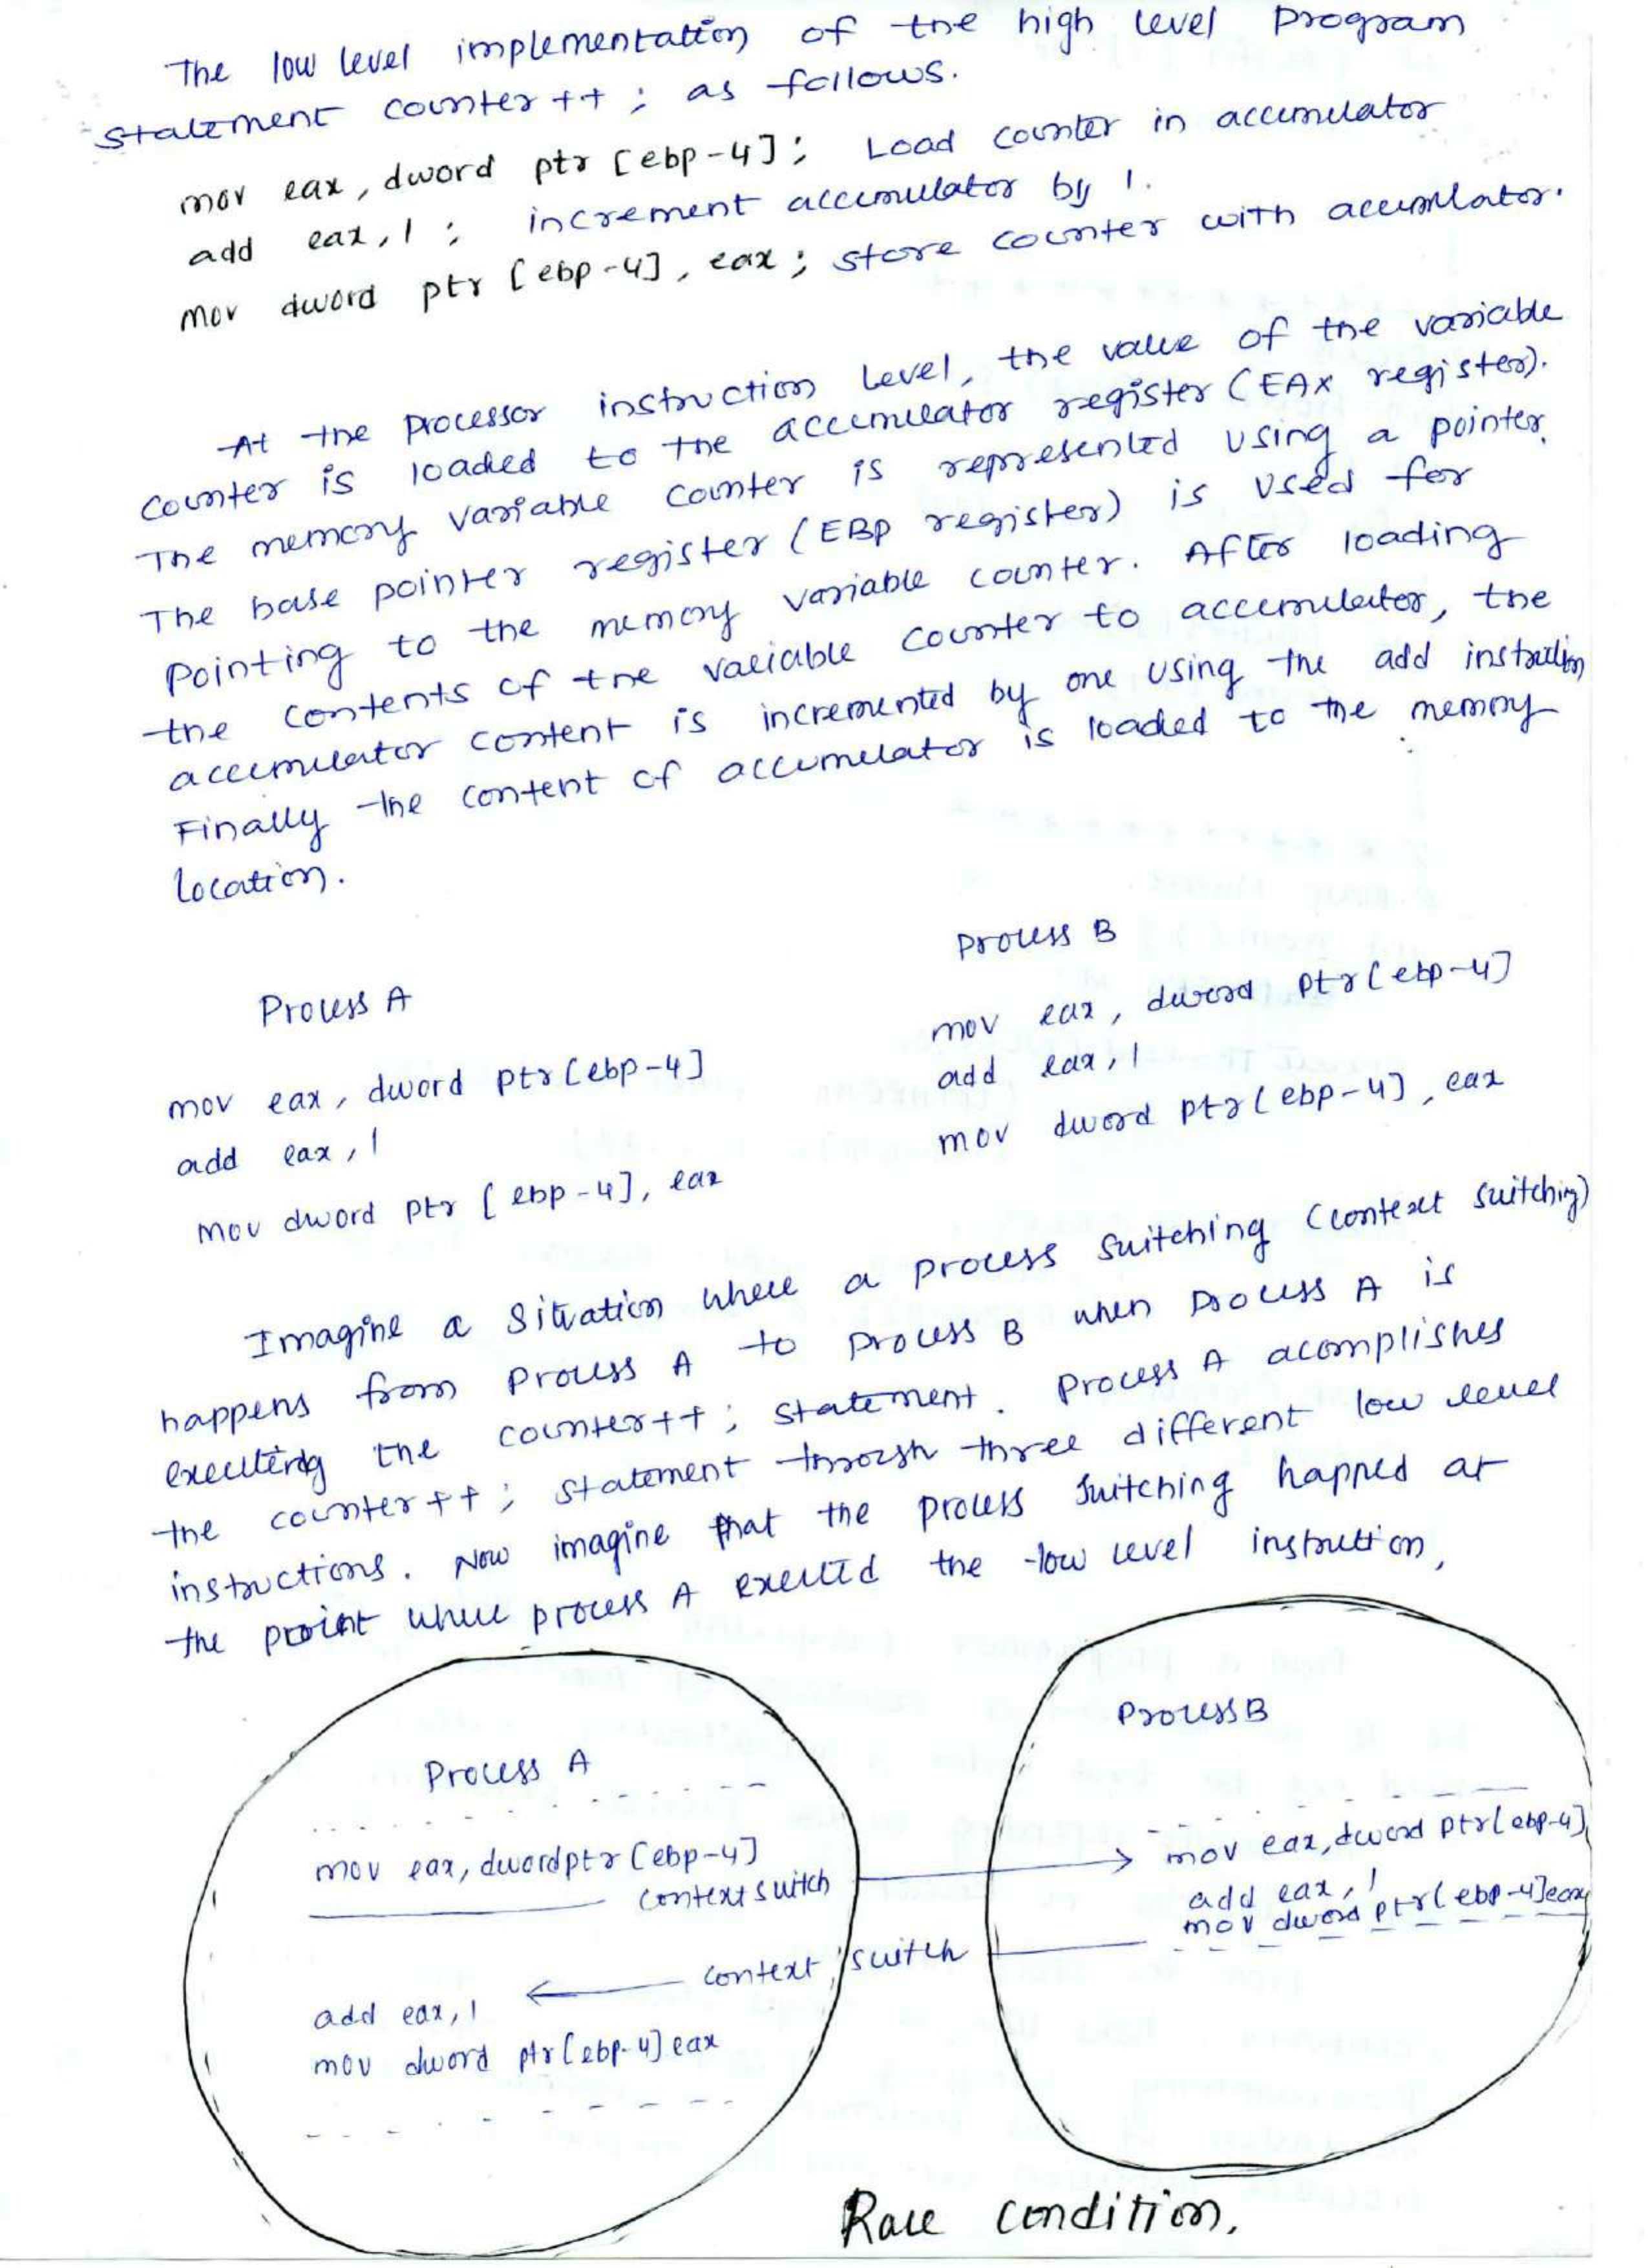 The low level implementation of the high level program
statement counter++ ; as follows.
mov eax, dword ptr [ebp-4]; Load counter in accumulator
add eax, 1 ; increment accumulator by 1.
mov dword ptr [ebp-4], eax ; store counter with accumlator.
At the processor instruction level, the value of the variable
counter is loaded to the accumulator register (EAX register).
The memory variable counter is represented using a pointer.
The base pointer register (EBP register) is used for
pointing to the memory variable counter. After loading
the contents of the variable counter to accumulator, the
accumulator content is incremented by one using the add instruction
Finally the content of accumulator is loaded to the memory
location.
Process A
mov eax, dword ptr [ebp-4]
add eax, 1
mov dword ptr [ebp-4], eax
Process B
mov eax, dword ptr [ebp-4]
add eax, 1
mov dword ptr [ebp-4], eax
Imagine a situation where a process switching (context switching)
happens from process A to process B when process A is
executing the counter++ ; statement. Process A acomplishes
the counter++ ; statement through three different low level
instructions. Now imagine that the process switching happned at
the point where process A executed the low level instruction,
Process A
mov eax, dword ptr [ebp-4]
context switch
context switch
add eax, 1
mov dword ptr [ebp-4] eax
Process B
mov eax, dword ptr [ebp-4]
add eax, 1
mov dword ptr [ebp-4] eax
Race condition.